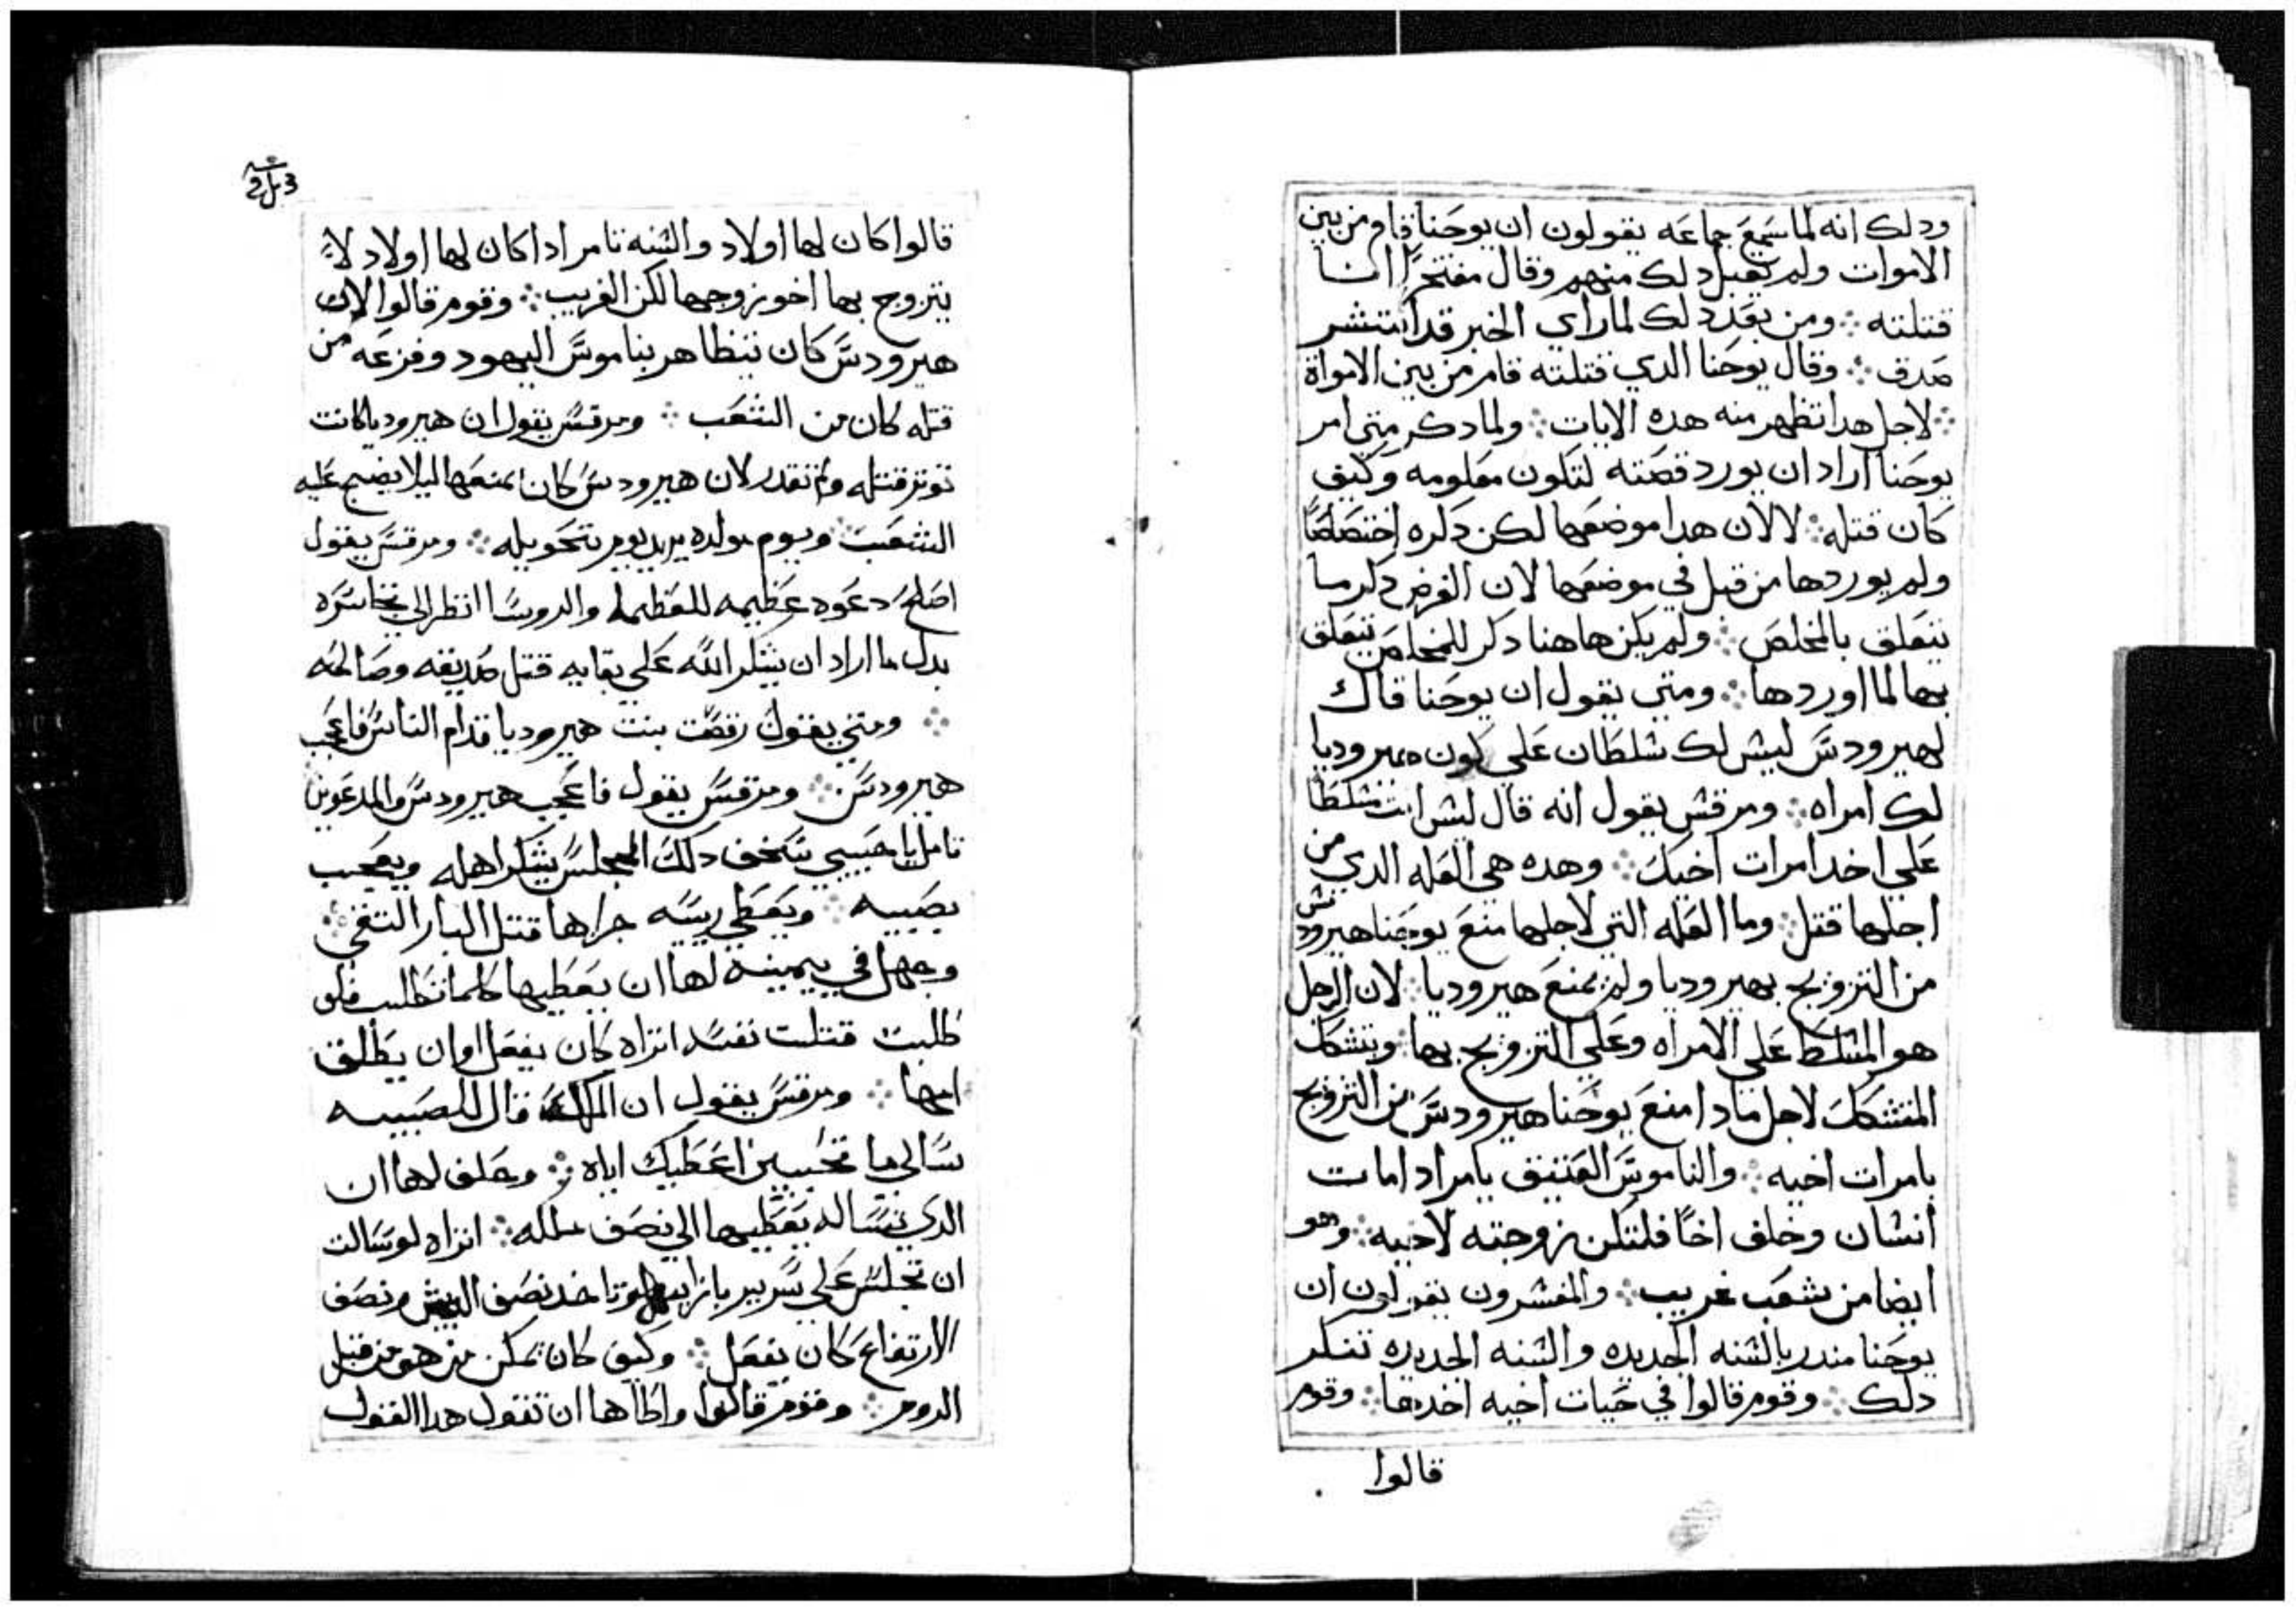 ودلك انه لما سمع جماعه يقولون ان يوحنا قام من بين
الاموات ولم يقبل دلك منهم وقال مفتخرًا انا
قتلته ⁘ ومن بعد دلك لما راي الخبر قد انتشر
صدق ⁘ وقال يوحنا الدي قتلته قام من بين الامواة
⁘ لاجل هدا تظهر منه هده الايات ⁘ ولما دكر متي امر
يوحنا اراد ان يورد قصته لتكون معلومه وكيف
كان قتله ⁘ لا لان هدا موضعها لكن دكره اختصاصًا
ولم يوردها من قبل في موضعها لان الغرض دكر ما
يتعلق بالمخلص ⁘ ولم يكن هاهنا دكر للمخلص يتعلق
بها لما اوردها ⁘ ومتي يقول ان يوحنا قال
لهيرودس ليش لك شلطان علي كون هيروديا
لك امراه ⁘ ومرقش يقول انه قال ليش انت مشلطا
علي اخد امرات اخيك ⁘ وهده هي العله الدي من
اجلها قتل ⁘ وما العله التي لاجلها منع يوحنا هيرودش
من التزويج بهيروديا ولم يمنع هيروديا ⁘ لان الرجل
هو المشلط علي الامراه وعلي التزويج بها ⁘ ويتشكك
المتشكك لاجل مادا منع يوحنا هيرودس من التزويج
بامرات اخيه ⁘ والناموس العتيق يامر ادا مات
انشان وخلف اخًا فلتكن زوجته لاخيه ⁘ وهو
ايضا من شعب غريب ⁘ والمفشرون يقولون ان
يوحنا مندر بالشنه الجديده والشنه الجديده تنكر
دلك ⁘ وقوم قالوا في حيات اخيه اخدها ⁘ وقوم
قالوا
قالوا كان لها اولاد والشنه تامر ادا كان لها اولاد لا
يتزوج بها اخو زوجها لكن الغريب ⁘ وقوم قالوا لان
هيرودس كان يتظاهر بناموس اليهود وفزعه من
قتله كان من الشعب ⁘ ومرقس يقول ان هيروديا كانت
توثر قتله ولم تقدر لان هيرودس كان يمنعها ليلا يضج عليه
الشعب ⁘ ويوم مولده يريد يوم تحويله ⁘ ومرقس يقول
اصلح دعوه عظيمه للعظما والروسا انظر الي تخاسره
بدل ما اراد ان يشكر الله علي بقايه قتل صديقه وصالحه
⁘ ومتي يقول رقصت بنت هيروديا قدام الناس فاعجب
هيرودس ⁘ ومرقس يقول فاعجب هيرودس والمدعوين
تامل يا حبيبي سخف دلك المجلس يشكر اهله ويعجب
بصبيه ⁘ ويعطي ريسه جزاها قتل البار التقي ⁘
وجهل في يمينه لها ان يعطيها كلما تطلب فلو
طلبت قتلت نفسه اتراه كان يفعل او ان يطلق
امها ⁘ ومرقس يقول ان الملك قال للصبيه
سالي ما تحبين اعطيك اياه ⁘ وحلف لها ان
الدي تساله يعطيها الي نصف ملكه ⁘ اتراه لو سالت
ان تجلس علي سرير بازايه وتاخد نصف الجيش ونصف
الارتفاع كان يفعل ⁘ وكيف كان يمكن من هو من قبل
الروم ⁘ وقوم قالوا واطاها ان تقول هدا القول